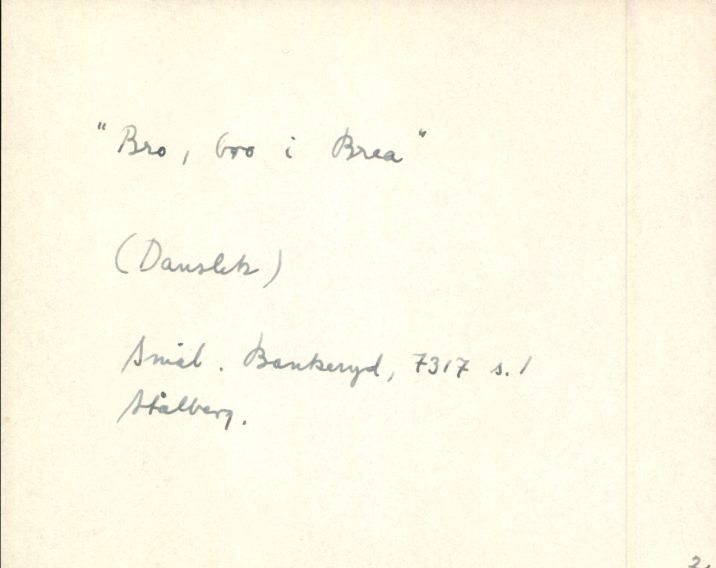 "Bro, bro i Brea"
(Danslek)
Smål. Bankeryd, 7317 s. 1
Stålberg.